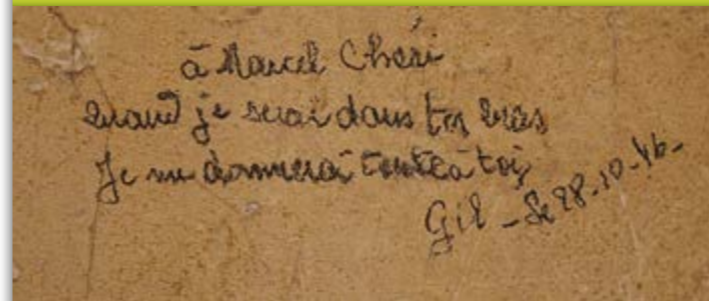 à Marcel Chéri
Quand je serai dans tes bras
Je me donnerai toute à toi
Gil - Le 28-10-46-